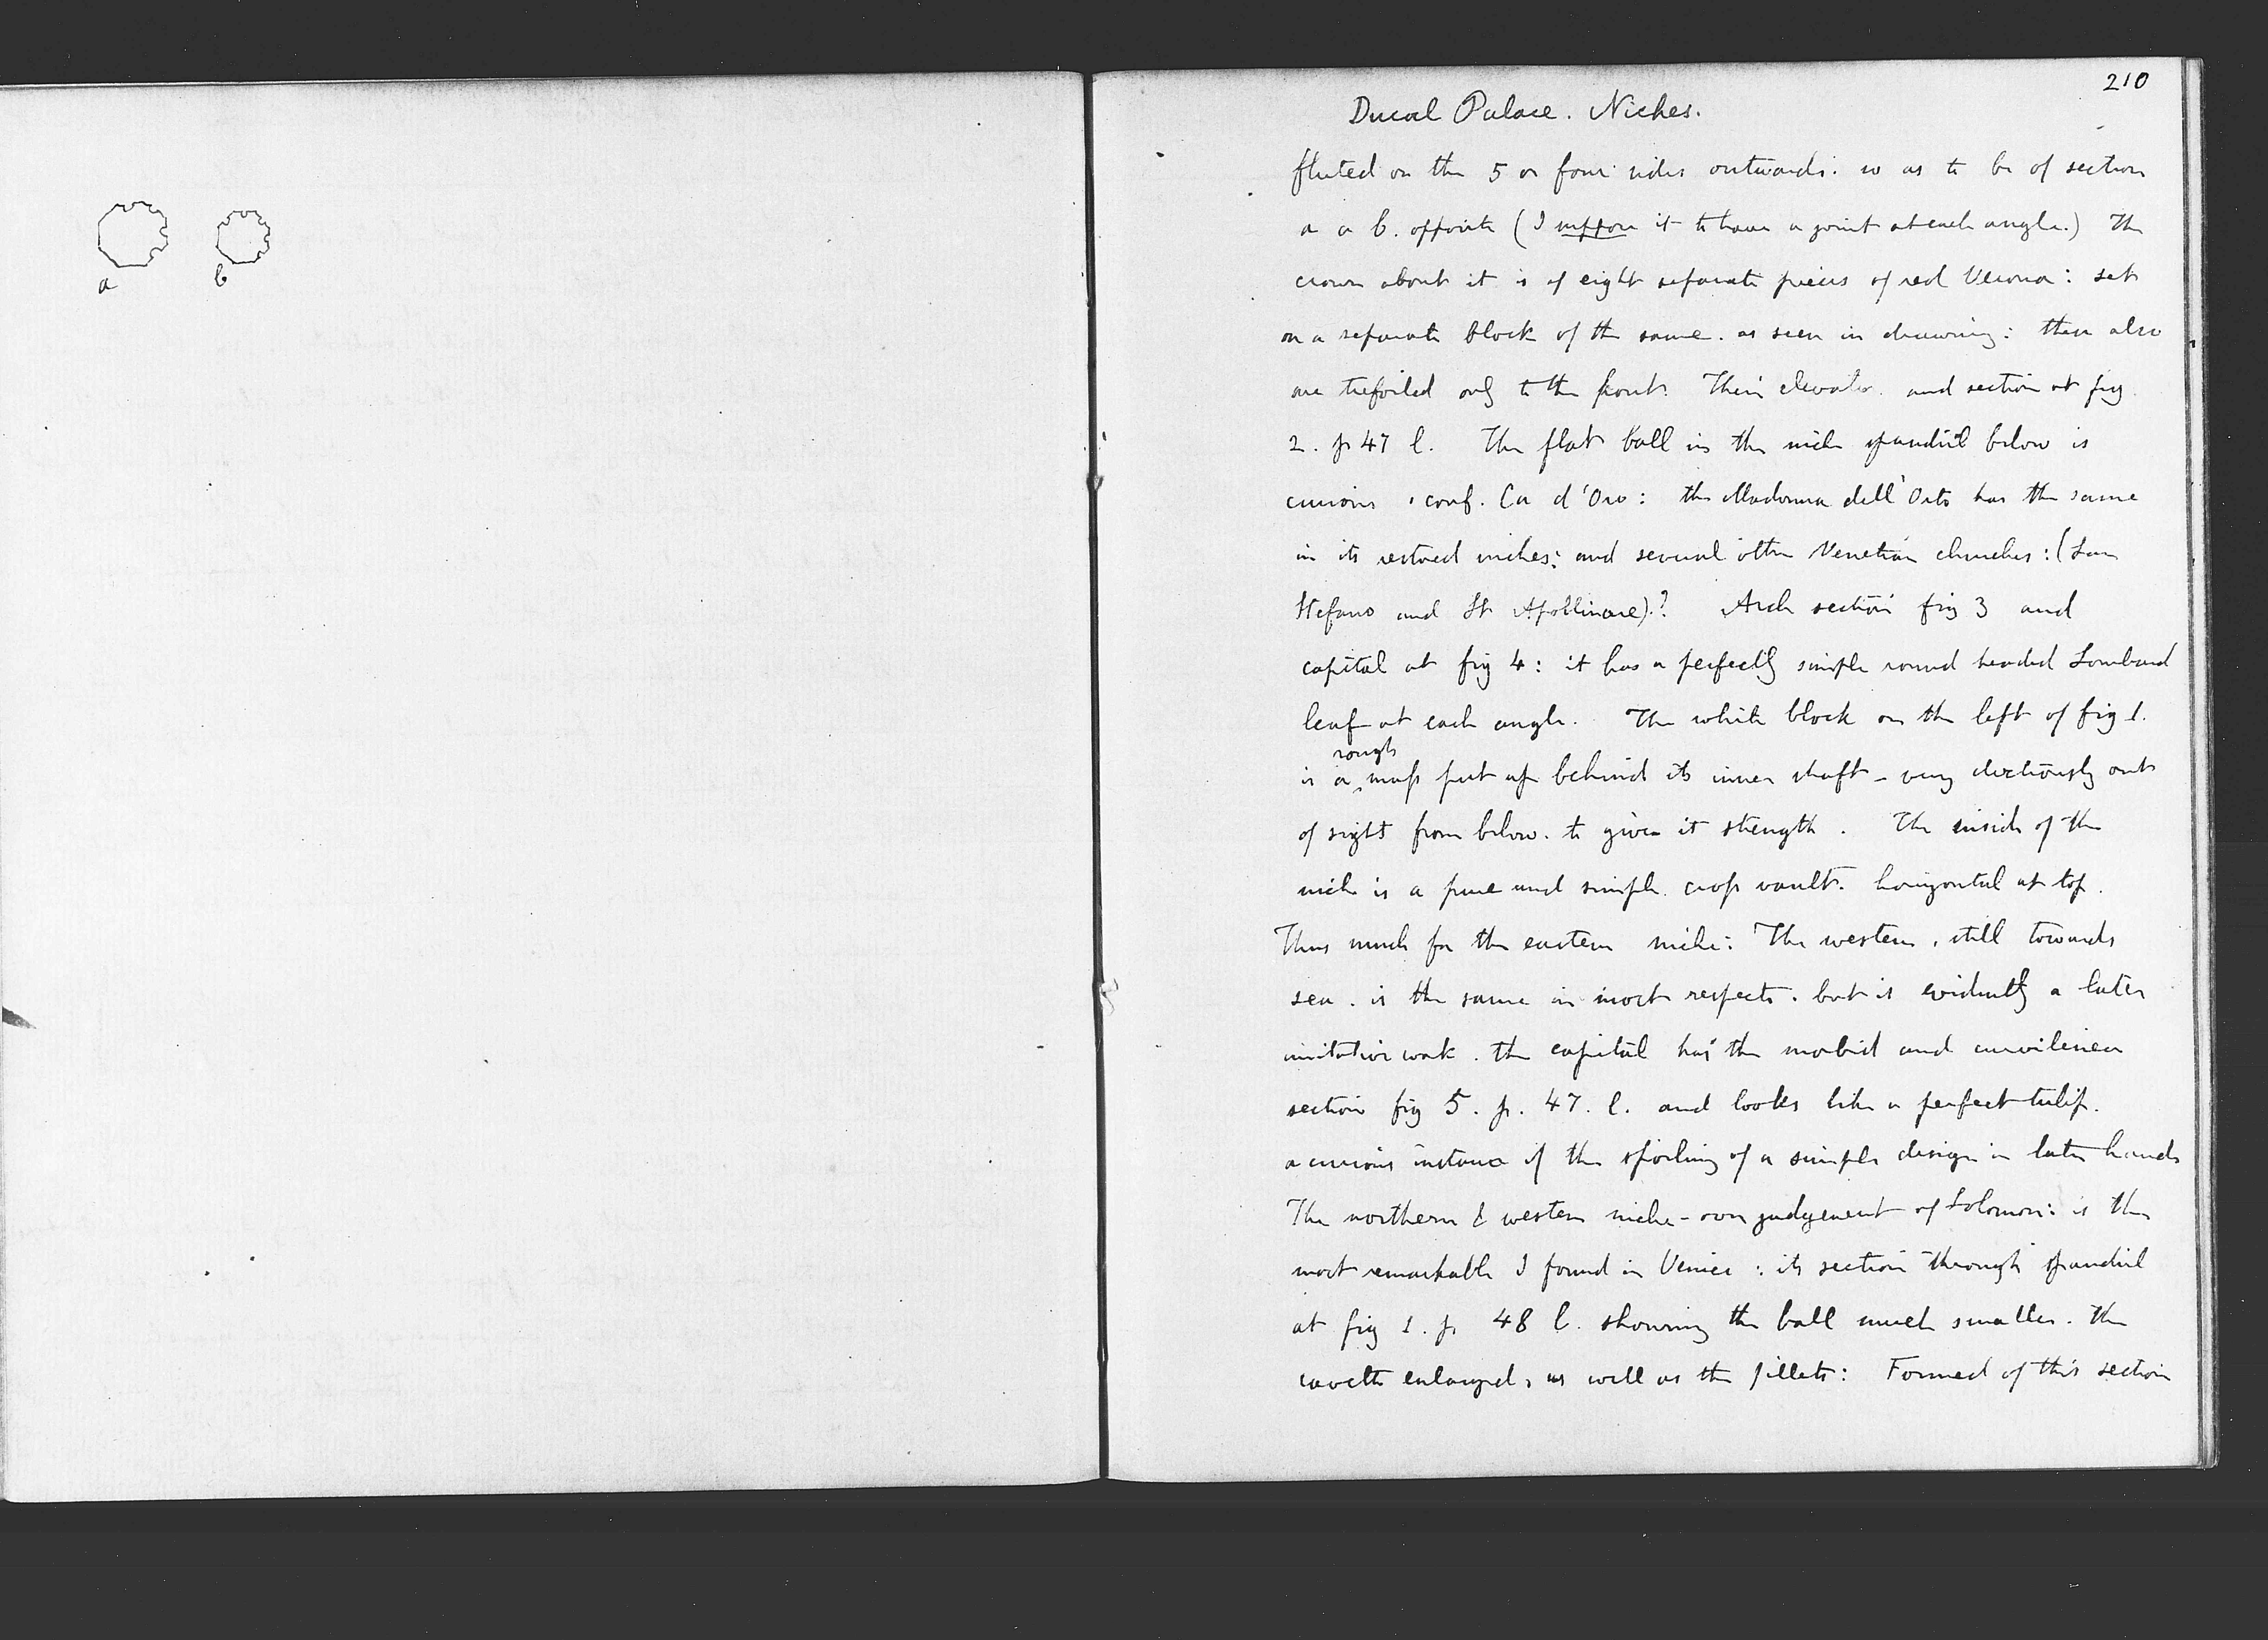 a
b
210
Ducal Palace. Niches.
fluted on the 5 or four sides outwards: so as to be of section
a or b. opposite (I suppose it to have a joint at each angle.) The
crown about it is of eight separate pieces of red Verona: set
on a separate block of the same. as seen in drawing: these also
are trefoiled only to the front. Their elevatn. and section at fig
2. p 47 l. The flat ball in the niche spandril below is
curious, conf. Ca d'Oro: the Madonna dell' Orto has the same
in its restored niches: and several other Venetian churches: (San
Stefano and St Apollinare).? Arch section fig 3 and
capital at fig 4: it has a perfectly simple round headed Lombard
leaf at each angle. The white block on the left of fig 1.
is a rough mass put up behind its inner shaft - very dexterously out
of sight from below. to give it strength. The inside of the
niche is a pure and simple cross vault. horizontal at top.
Thus much for the eastern niche: The western, still towards
sea. is the same in most respects. but is evidently a later
imitative work. the capital has the morbid and curvilinear
section fig 5. p. 47. l. and looks like a perfect tulip.
a curious instance of the spoiling of a simple design in later hands
The northern & western niche - over judgement of Solomon: is the
most remarkable I found in Venice: its section through spandril
at fig 1. p 48 l. showing the ball much smaller. the
cavetto enlarged, as well as the fillets: Formed of this section